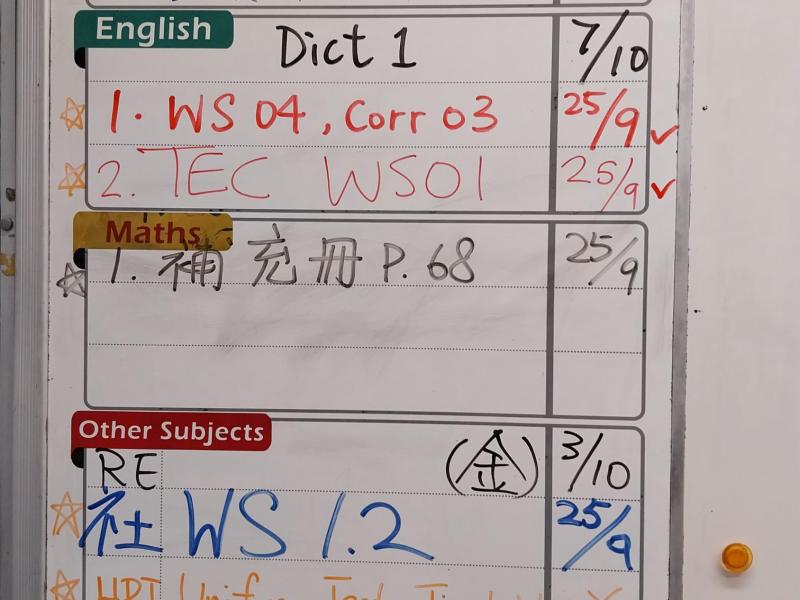 English
Dict 1 7/10
1. WS 04, Corr 03 25/9
2. TEC WS01 25/9
Maths
1. 補充冊 P. 68 25/9
Other Subjects
RE (金) 3/10
社 WS 1.2 25/9